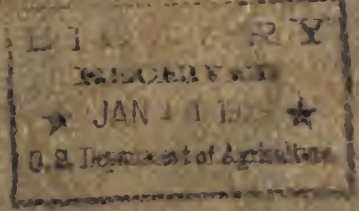 LIBRARY
RECEIVED
★ JAN ★
U.S. Department of Agriculture